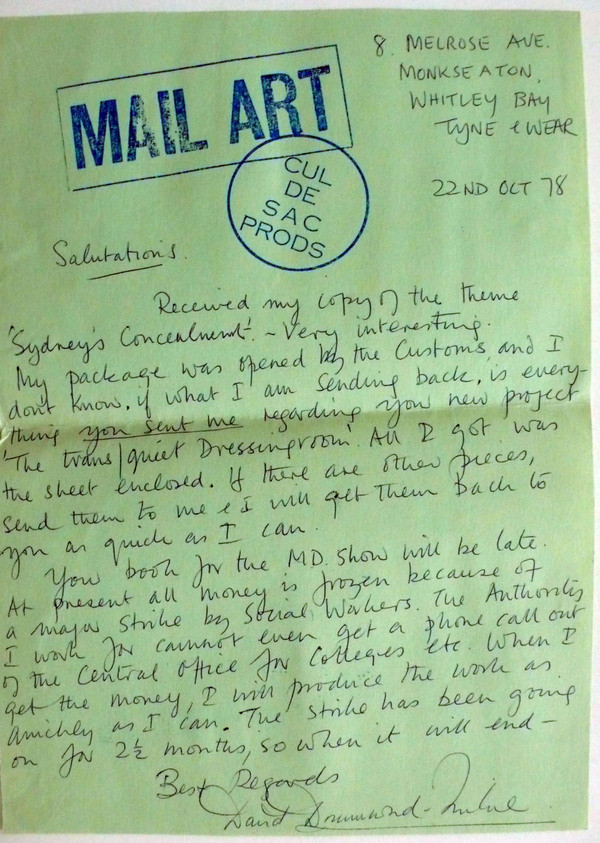 8. MELROSE AVE.
MONKSEATON,
WHITLEY BAY
TYNE & WEAR
22ND OCT 78
MAIL ART
CUL
DE
SAC
PRODS
Salutations.
Received my copy of the theme
'Sydney's Concealment'. - Very interesting.
My package was opened by the Customs, and I
don't know, if what I am sending back, is every-
thing you sent me regarding your new project
'The trans/quiet Dressingroom'. All I got was
the sheet enclosed. If there are other pieces,
send them to me & I will get them back to
you as quick as I can.
Your book for the MD. Show will be late.
At present all money is frozen because of
a major strike by Social Workers. The Authority
I work for cannot even get a phone call out
of the Central Office for Colleges etc. When I
get the money, I will produce the work as
quickly as I can. The strike has been going
on for 2½ months, so when it will end -
Best Regards
David Drummond-Milne